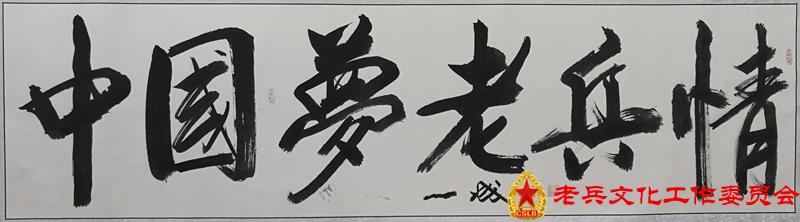 中國夢老兵情
一成
CSLB
老兵文化工作委员会